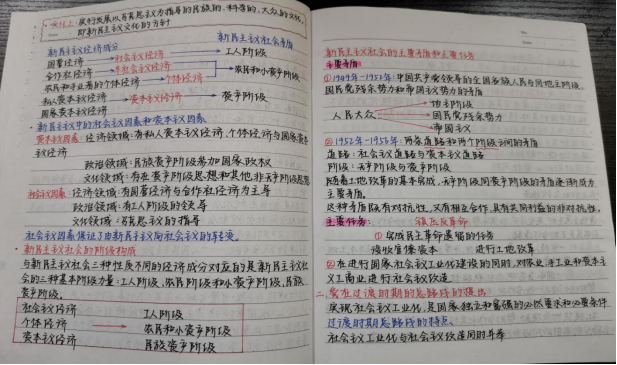 ·文化上:实行发展以马克思主义为指导的民族的、科学的、大众的文化,
即新民主主义文化的方针
新民主主义经济成分 新民主主义社会矛盾
国营经济 社会主义经济 工人阶级
合作社经济 半社会主义经济
农民和手工业者的个体经济 个体经济 农民和小资产阶级
私人资本主义经济 资本主义经济 资产阶级
国家资本主义经济
·新民主主义中的社会主义因素和资本主义因素
资本主义因素:经济领域:有私人资本主义经济、个体经济与国家资本
主义经济
政治领域:民族资产阶级参加国家政权
文化领域:有在资产阶级思想和其他非无产阶级思想
社会主义因素:经济领域:有国营经济与合作社经济为主导
政治领域:有工人阶级的领导
文化领域:马克思主义的指导
社会主义因素保证了由新民主主义向社会主义的转变。
·新民主主义社会的阶级构成
与新民主主义社会三种性质不同的经济成分对应的是新民主主义社
会的三种基本阶级力量:工人阶级、农民阶级和小资产阶级、民族
资产阶级。
社会主义经济 工人阶级
个体经济 农民和小资产阶级
资本主义经济 民族资产阶级
新民主主义社会的主要矛盾和主要任务
主要矛盾
①1949年-1952年:中国共产党领导的全国各族人民与同地主阶级、
国民党残余势力和帝国主义势力的矛盾
地主阶级
人民大众 国民党残余势力
帝国主义
②1952年-1956年:两条道路和两个阶级之间的矛盾
道路:社会主义道路与资本主义道路
阶级:无产阶级与资产阶级
随着土地改革的基本完成,无产阶级同资产阶级的矛盾逐渐成为
主要矛盾。
这种矛盾既有对抗性,又有相互合作、具有共同利益的非对抗性。
主要任务: 镇压反革命
①完成民主革命遗留的任务
没收官僚资本 进行土地改革
②在进行国家社会主义工业化建设的同时,对农业、手工业和资本主
义工商业进行社会主义改造
二、党在过渡时期的总路线的提出
实现社会主义工业化,是国家独立和富强的必然要求和必要条件
过渡时期总路线的特点:
社会主义工业化与社会主义改造同时并举